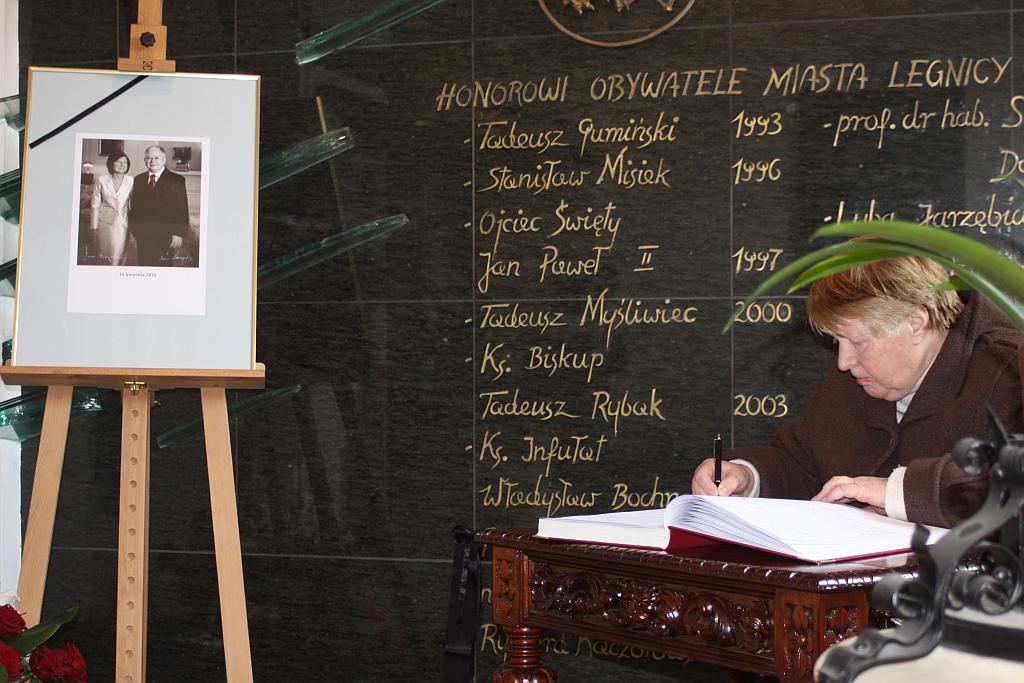 HONOROWI OBYWATELE MIASTA LEGNICY
- Tadeusz Gumiński 1993
- Stanisław Misiek 1996
- Ojciec Święty
Jan Paweł II 1997
- Tadeusz Myśliwiec 2000
- Ks. Biskup
Tadeusz Rybak 2003
- Ks. Infułat
Władysław Boch
- prof. dr hab. S
Do
- Luba Jarzębic
10 kwietnia 2010